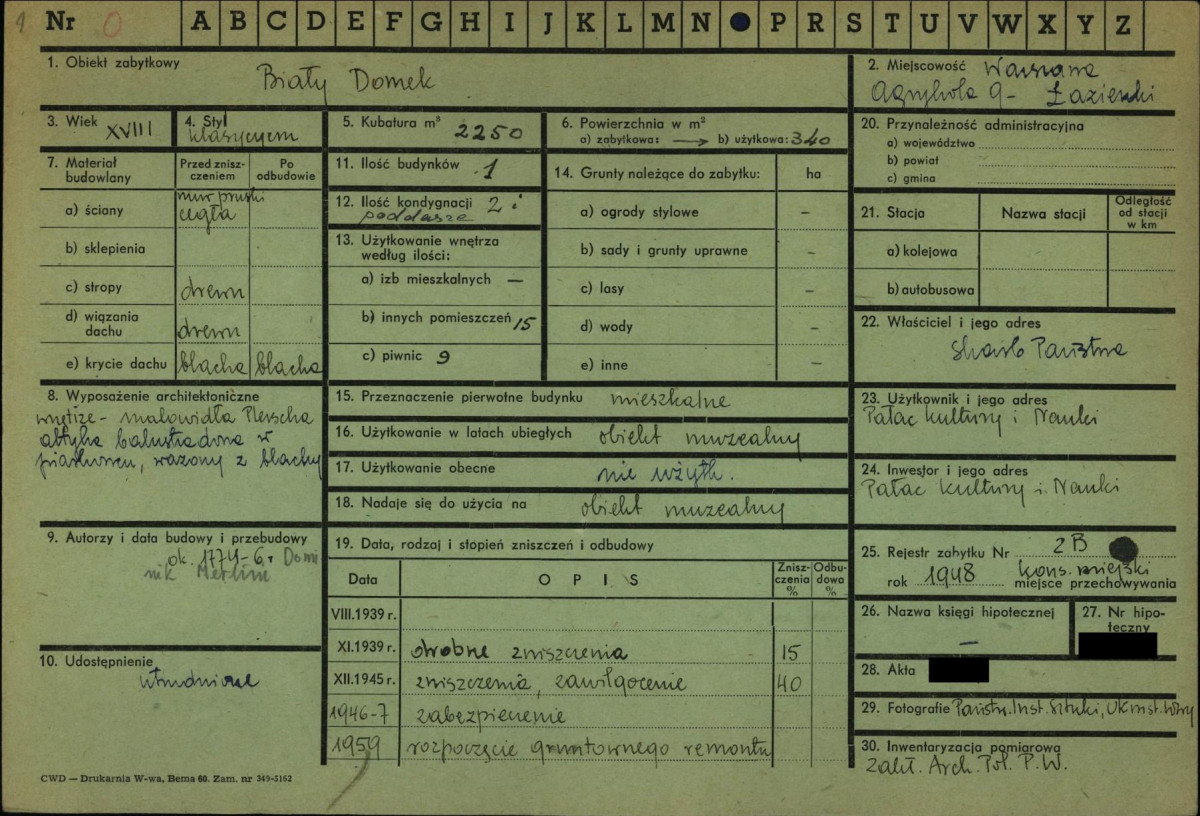 Nr 0 A B C D E F G H I J K L M N P R S T U V W X Y Z
1. Obiekt zabytkowy
Biały Domek
2. Miejscowość Warszawa
Agrykola 9 - Łazienki
3. Wiek XVIII
4. Styl
klasycyzm
5. Kubatura m³ 2250
6. Powierzchnia w m²
a) zabytkowa: → b) użytkowa: 340
7. Materiał budowlany
Przed zniszczeniem
Po odbudowie
a) ściany mur pruski
cegła
b) sklepienia
c) stropy drewn
d) wiązania dachu drewn
e) krycie dachu blacha blacha
8. Wyposażenie architektoniczne
wnętrze - malowidła Plerscha
attyka balustradowa w
piaskowcu, wazony z blachy
9. Autorzy i data budowy i przebudowy
ok. 1774-6 r Domi
nik Merlini
10. Udostępnienie
utrudnione
11. Ilość budynków 1
12. Ilość kondygnacji 2 i
poddasze
13. Użytkowanie wnętrza
według ilości:
a) izb mieszkalnych —
b) innych pomieszczeń 15
c) piwnic 9
14. Grunty należące do zabytku: ha
a) ogrody stylowe -
b) sady i grunty uprawne -
c) lasy -
d) wody -
e) inne -
15. Przeznaczenie pierwotne budynku mieszkalne
16. Użytkowanie w latach ubiegłych obiekt muzealny
17. Użytkowanie obecne nie użytk.
18. Nadaje się do użycia na obiekt muzealny
19. Data, rodzaj i stopień zniszczeń i odbudowy
Data OPIS Zniszczenia % Odbudowa %
VIII.1939 r.
XI.1939 r. drobne zniszczenia 15
XII.1945 r. zniszczenia, zawilgocenie 40
1946-7 zabezpieczenie
1959 rozpoczęcie gruntownego remontu
20. Przynależność administracyjna
a) województwo
b) powiat
c) gmina
21. Stacja Nazwa stacji Odległość od stacji w km
a) kolejowa
b) autobusowa
22. Właściciel i jego adres
Skarb Państwa
23. Użytkownik i jego adres
Pałac Kultury i Nauki
24. Inwestor i jego adres
Pałac Kultury i Nauki
25. Rejestr zabytku Nr 2B
rok 1948 kons. miejski
miejsce przechowywania
26. Nazwa księgi hipotecznej
—
27. Nr hipoteczny
28. Akta
29. Fotografie Państw. Inst. Sztuki, UKonst. Wwy
30. Inwentaryzacja pomiarowa
Zakł. Arch. Pol. P.W.
CWD — Drukarnia W-wa, Bema 60. Zam. nr 349-5162